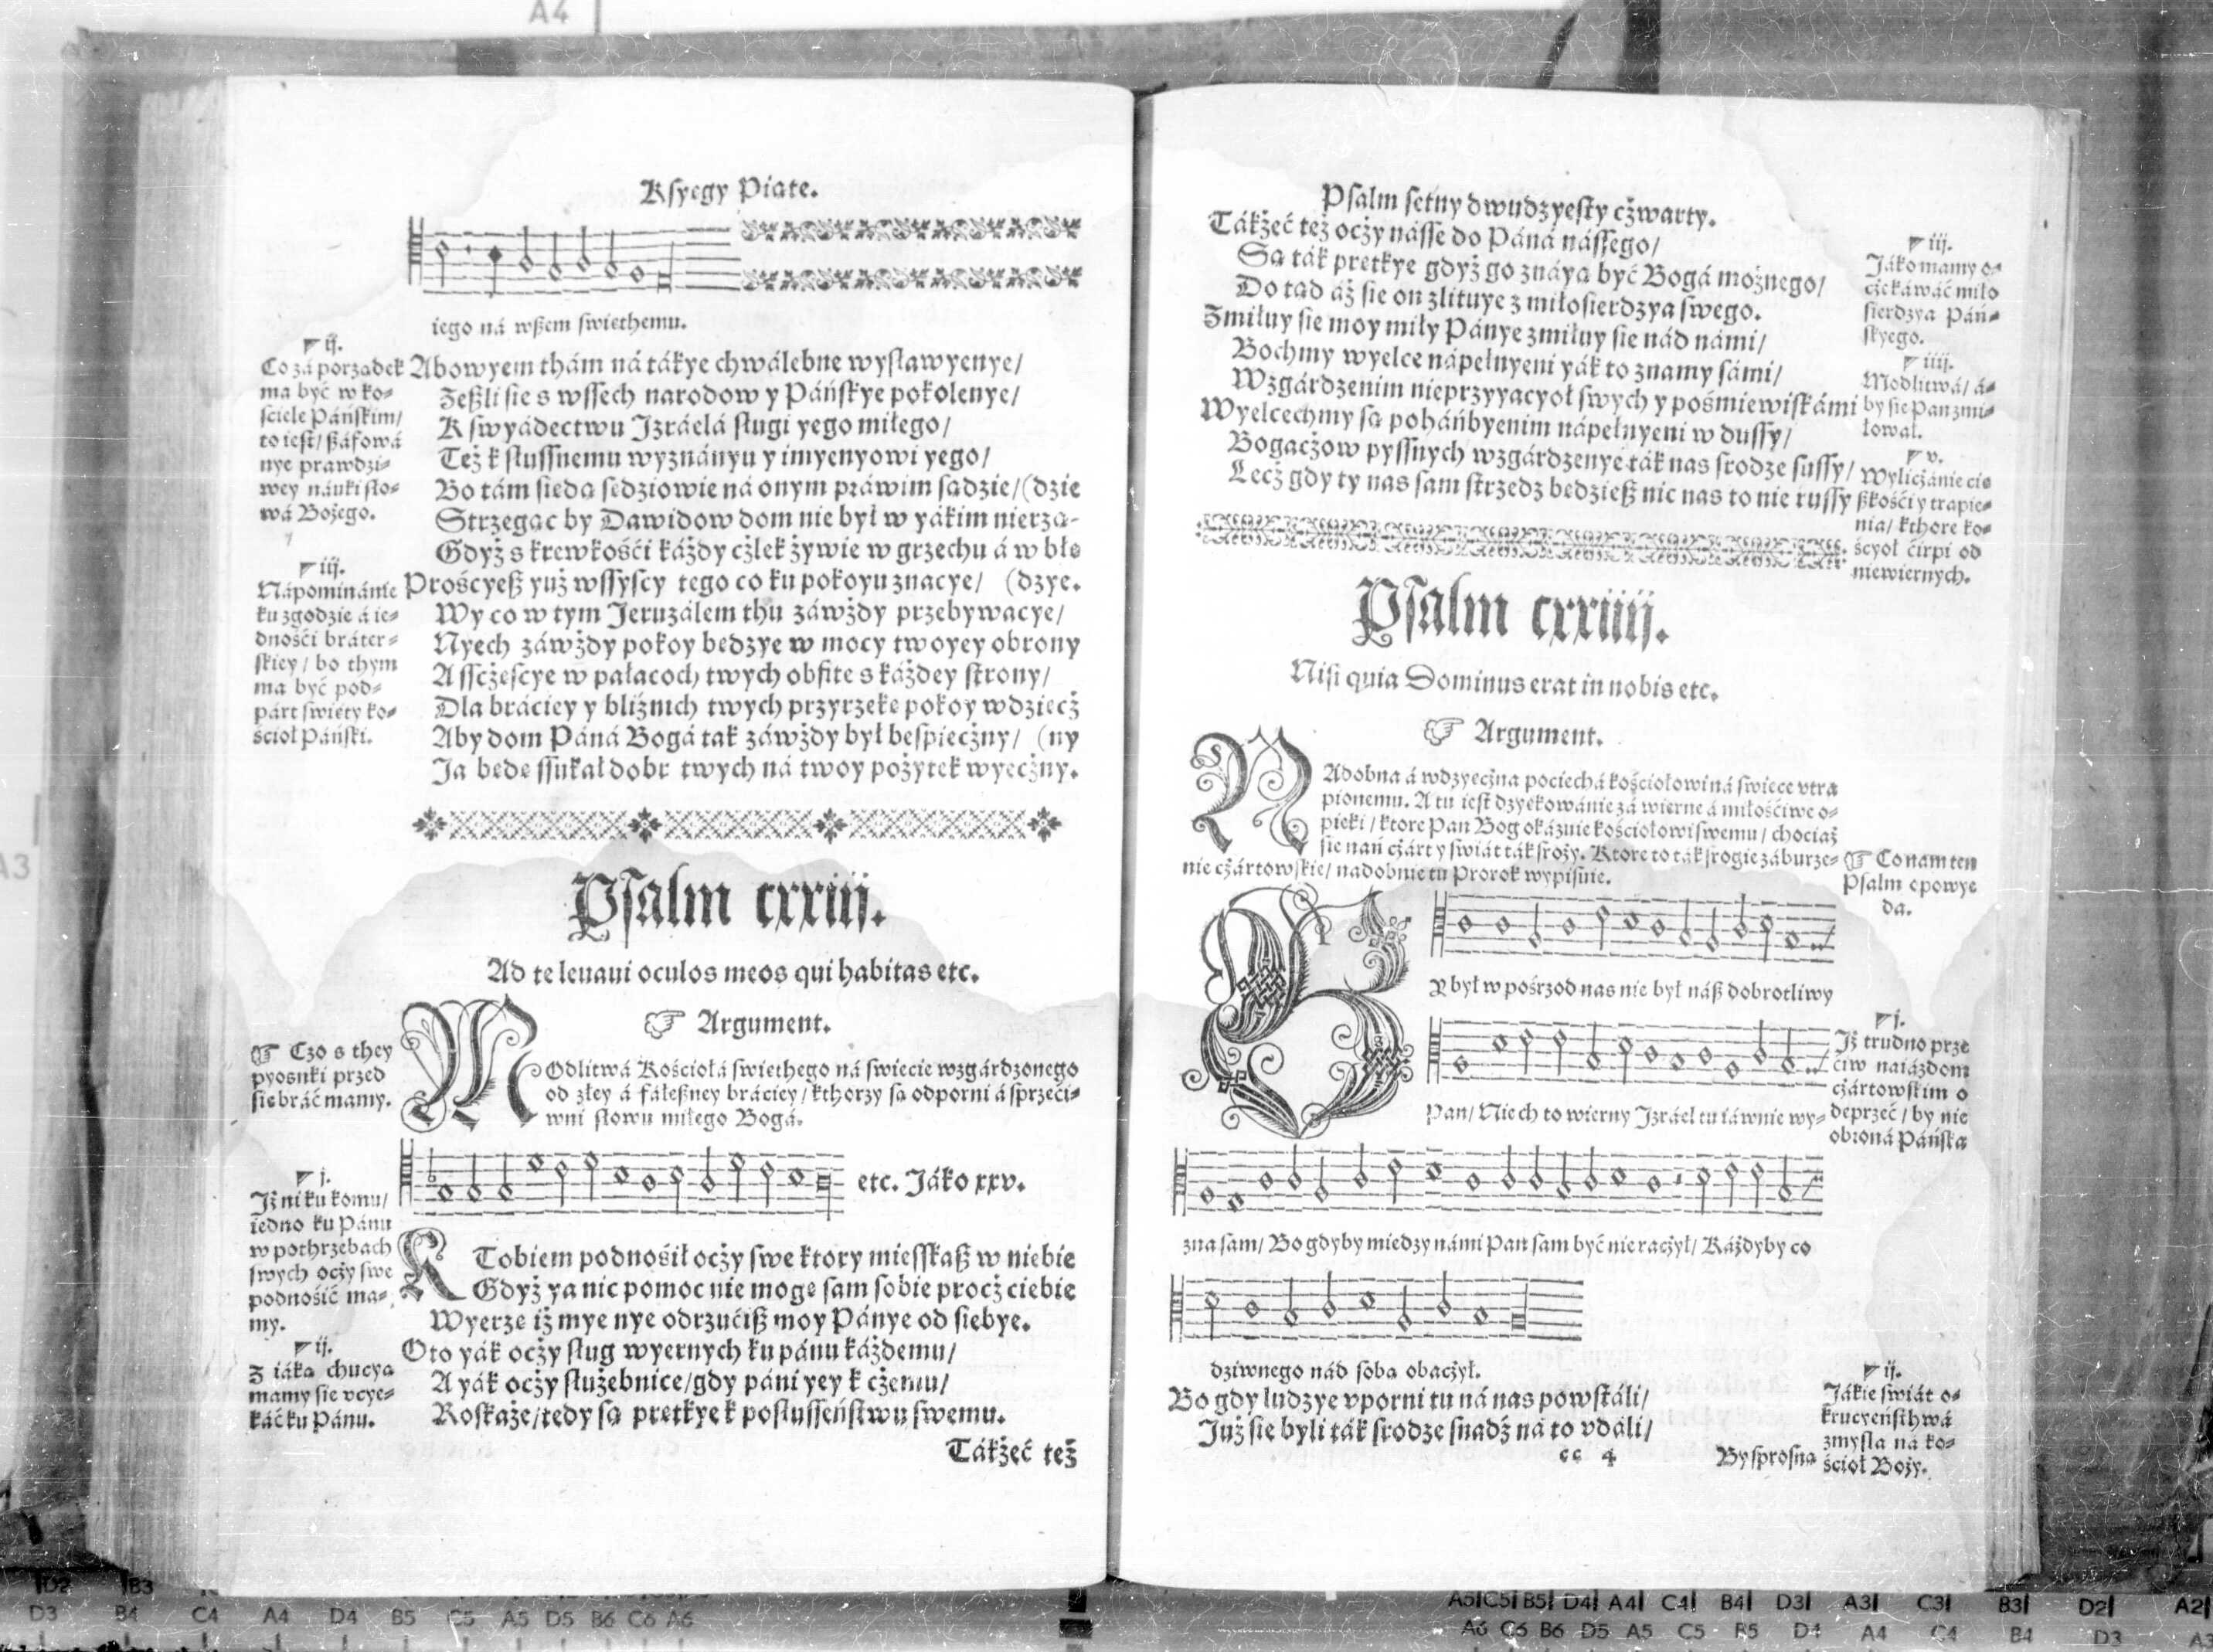 Ksyegy Piate.
iego ná wßem swiethemu.
ij.
Co zá porządek
ma być w ko-
ściele Páńskim/
to iest/ ßáfowá
nye prawdzi-
wey náuki sło-
wá Bożego.
Abowyem thám ná tákye chwálebne wysławyenye/
Zeßli sie s wssech narodow y Páńskye pokolenye/
K swyádectwu Izráelá sługi yego miłego/
Też k słussnemu wyznányu y imyenyowi yego/
Bo tám siedą sędziowie ná onym práwim sądzie/ (dzie
Strzegąc by Dawidow dom nie był w yákim nierzą-
Gdyż s krewkośći káżdy cżlek żywie w grzechu á w błę
iij.
Nápominánie
ku zgodzie á ie-
dnośći bráter-
skiey/ bo thym
ma być pod-
párt święty ko-
śćioł Páński.
Prośćyeß yuż wssyscy tego co ku pokoyu znacye/ (dzye.
Wy co w tym Jeruzálem thu záwżdy przebywacye/
Nyech záwżdy pokoy będzye w mocy twoyey obrony
A sscżęscye w pałacoch twych obfite s káżdey strony/
Dla bráciey y bliźnich twych przyrzekę pokoy wdzięcż
Aby dom Páná Bogá tak záwżdy był bespiecżny/ (ny
Ja będę ssukał dobr twych ná twoy pożytek wyecżny.
Psalm cxxiij.
Ad te leuaui oculos meos qui habitas etc.
☞ Argument.
☞ Czo s they
pyosnki przed
się bráć mamy.
MOdlitwá Kośćiołá swiethego ná swiecie wzgárdzonego
od złey á fáłeßney bráciey/ kthorzy są odporni á sprzeći-
wni słowu miłego Bogá.
etc. Jáko xxv.
j.
Jż ni ku komu/
iedno ku Pánu
w pothrzebach
swych ocży swe
podnośić ma-
my.
K Tobiem podnośił ocży swe ktory miesskaß w niebie
Gdyż ya nic pomoc nie mogę sam sobie procż ciebie
Wyerzę iż mye nye odrzućiß moy Pánye od siebye.
ij.
Z iáką chucyą
mamy się vcye-
káć ku Pánu.
Oto yák ocży sług wyernych ku pánu káżdemu/
A yák ocży służebnice/ gdy páni yey k cżemu/
Roskaże/ tedy są prętkye k posłusseństwu swemu.
Tákżeć też
Psalm setny dwudzyesty cżwarty.
Tákżeć też ocży násse do Páná nássego/
Są ták prętkye gdyż go znáyą być Bogá możnego/
Do tąd áż sie on zlituye z miłosierdzya swego.
iij.
Jáko mamy o-
cżekáwáć miło
sierdzya Páń-
skyego.
Zmiłuy sie moy miły Pánye zmiłuy sie nád námi/
Bochmy wyelce nápełnyeni yák to znamy sámi/
Wzgárdzenim nieprzyyacyoł swych y pośmiewiskámi
iiij.
Modlitwá/ á-
by sie Pan zmi-
łował.
Wyelcechmy są poháńbyenim nápełnyeni w dussy/
Bogacżow pyssnych wzgárdzenye ták nas srodze sussy/
Lecż gdy ty nas sam strzedz będzieß nic nas to nie russy
v.
Wylicżánie cię
ßkośći y trapie-
nia/ kthore ko-
śćyoł ćirpi od
niewiernych.
Psalm cxxiiij.
Nisi quia Dominus erat in nobis etc.
☞ Argument.
NAdobna á wdzyecżna pociechá kośćiołowi ná swiecę vtra
pionemu. A tu iest dzyękowánie zá wierne á miłośćiwe o-
pieki/ ktore Pan Bog okázuie kośćiołowi swemu/ chociaż
się nań cżárt y świát ták sroży. Ktore to ták srogie záburze-
nie cżártowskie/ nadobnie tu Prorok wypisuie.
☞ Co nam ten
Psalm opowye
da.
BY był w pośrzod nas nie był náß dobrotliwy
j.
Jż trudno prze
ćiw naiázdom
cżártowskim o
deprzeć/ by nie
obroná Páńska
Pan/ Niech to wierny Izráel tu iáwnie wy-
zna sam/ Bo gdyby miedzy námi Pan sam być nie racżył/ Káżdyby co
dziwnego nád sobą obacżył.
Bo gdy ludzye vporni tu ná nas powstáli/
Już się byli ták srodze snadź ná to vdáli/
ij.
Jákie świát o-
krucyeństhwá
zmysla ná ko-
śćioł Boży.
cc 4
By sprosną